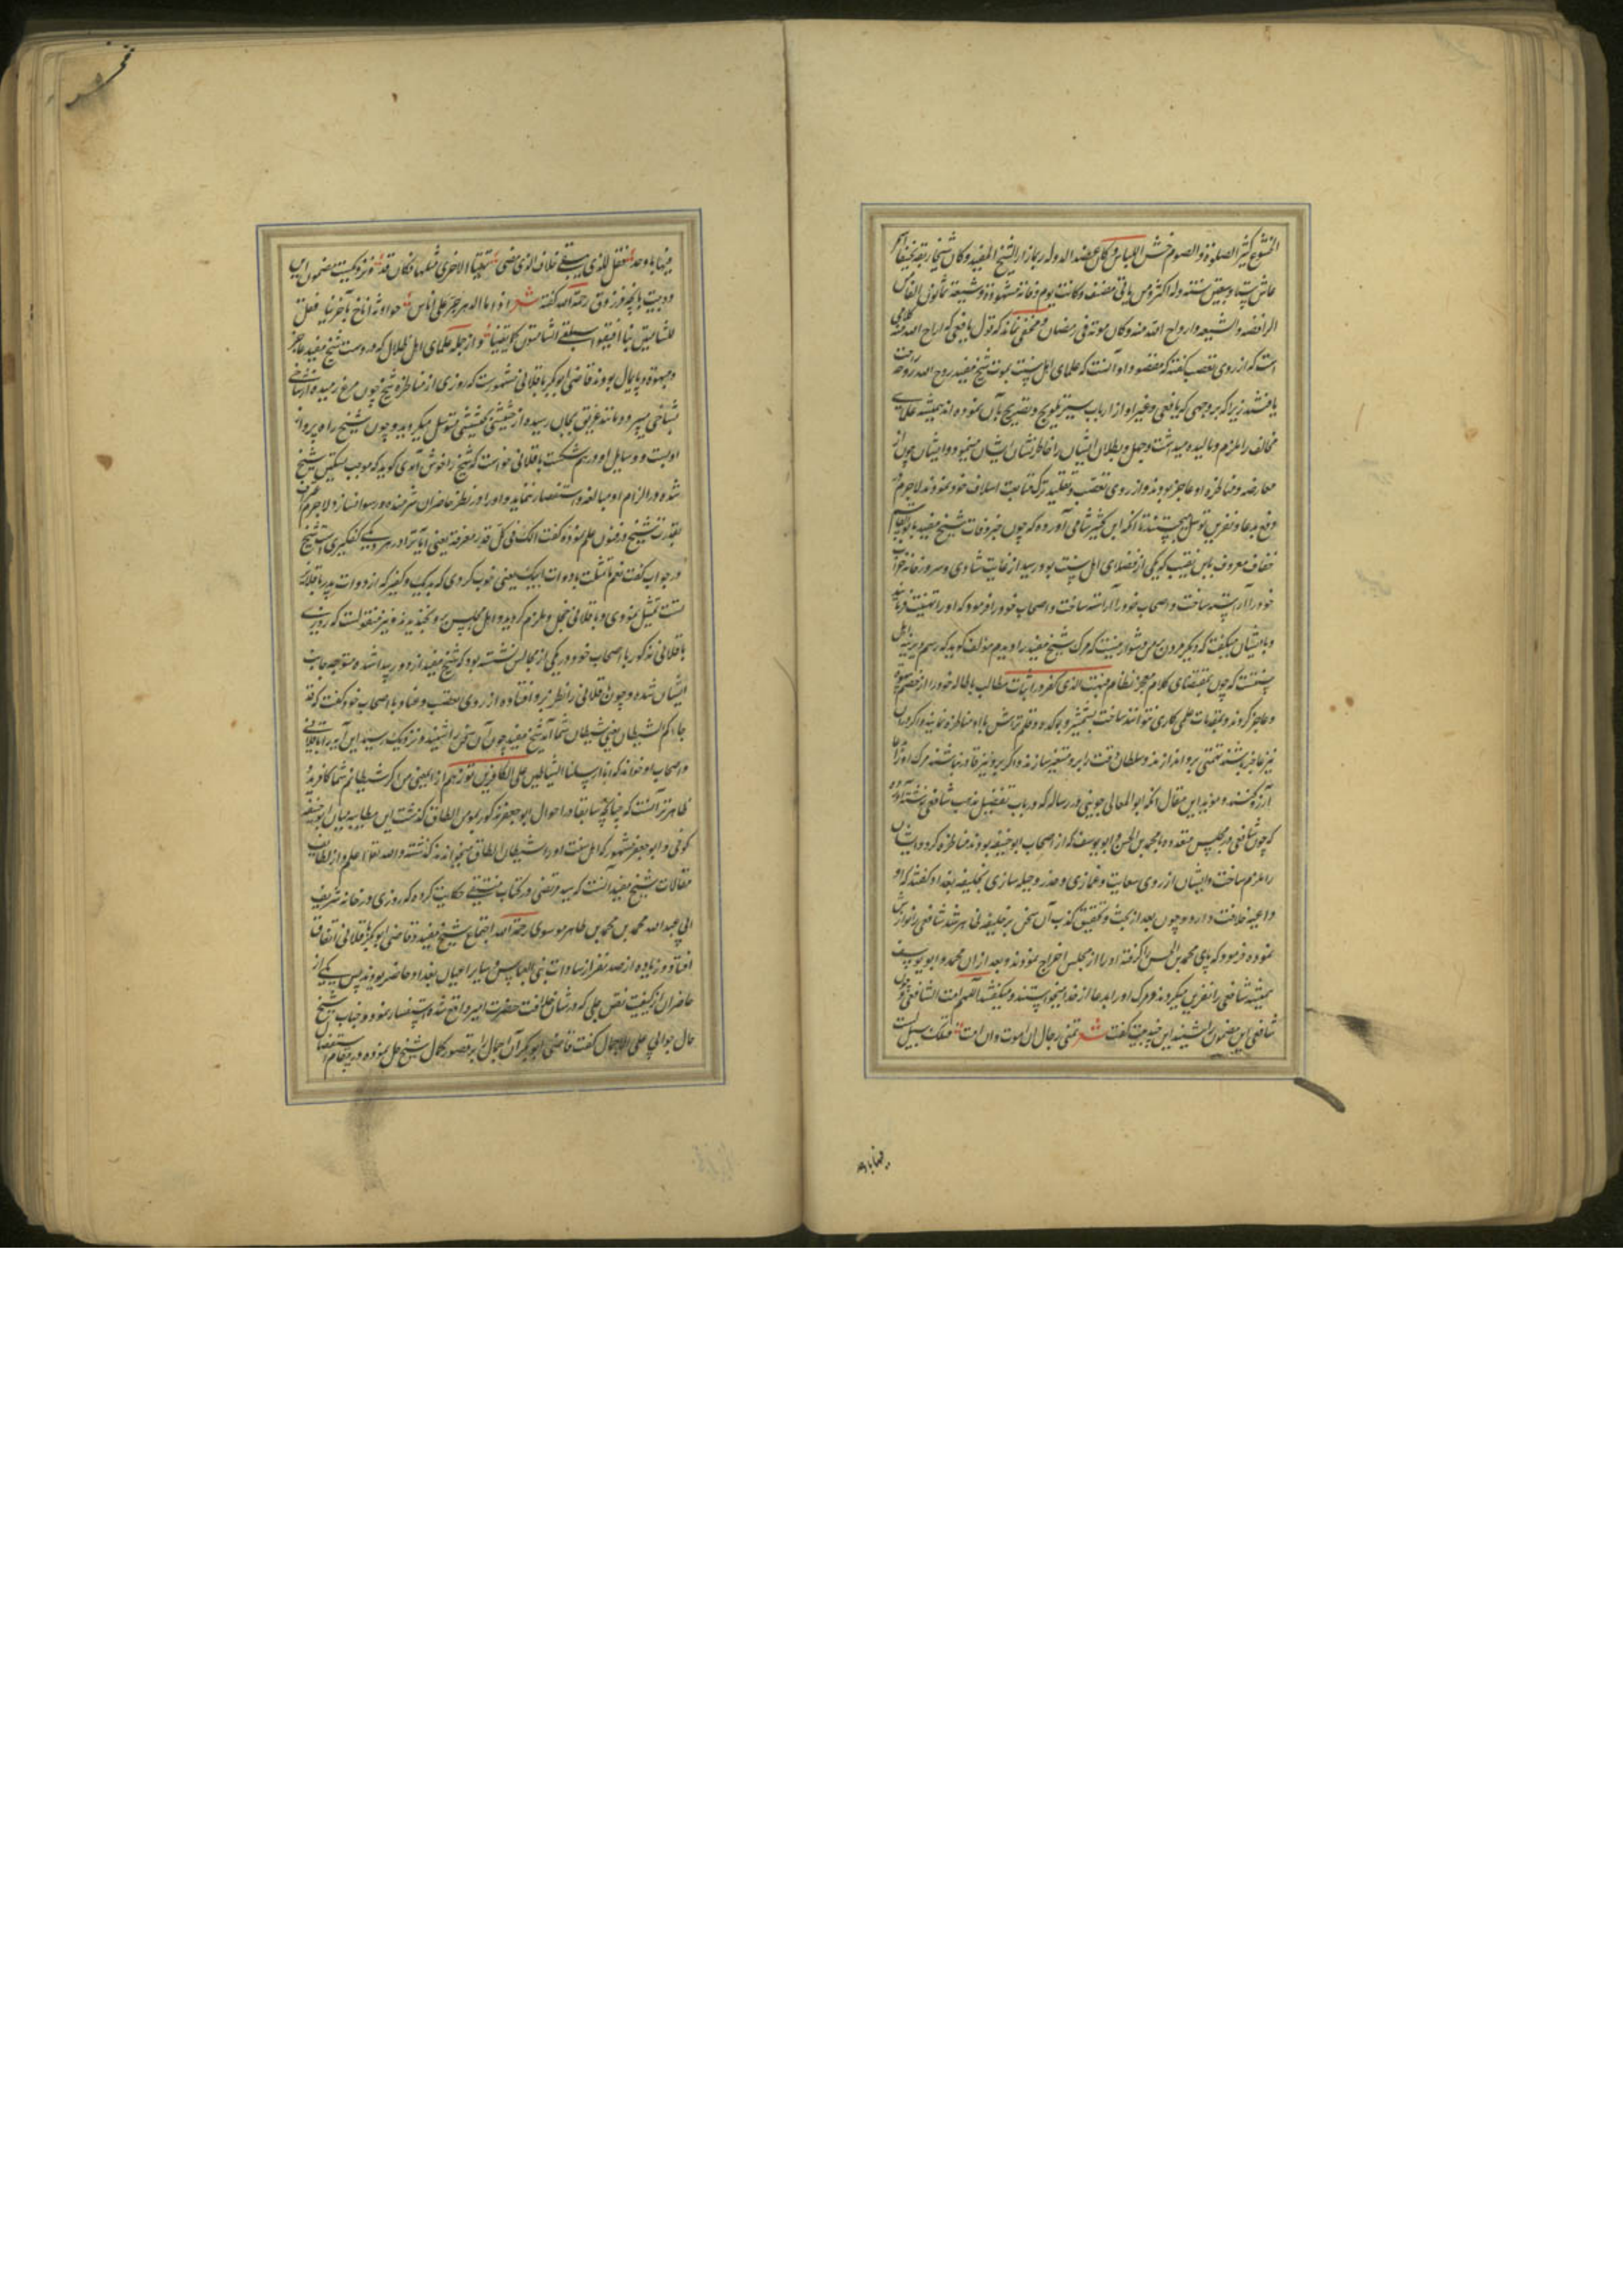 الخشوع کثیر الصلوة والصوم خشن اللباس و کان عضد الدوله ربما زار الشیخ المفید و کان شیخا ربعة نحیفا اسمر
عاش ستا و سبعین سنة وله اکثر من مأتی مصنف و کانت یوم وفاته مشهودة و شیعه ثمانون الفا من
الرافضه والشیعه و اراح الله منه و کان موته فی رمضان و مخفی نماند که قول یافعی که اراح الله منه کلامی
است که از روی تعصب گفته که مقصود او آنست که علمای اهل سنت بموت شیخ مفید روح الله روحه راحت
یافتند زیرا که بر وجهی که یافعی و غیر او از ارباب سیر تلویح و تصریح بآن نموده اند همیشه علمای
مخالف را ملزم و مالیده میداشت و جهل و بطلان ایشان را خاطر نشان ایشان مینمود و ایشان چون از
معارضه و مناظره او عاجز بودند و از روی تعصب و تقلید ترک متابعت اسلاف خود ننمودند لاجرم در
دفع بدعا و نفرین توسل میجستند تا آنکه ابن کثیر شامی آورده که چون خبر وفات شیخ مفید بابو القاسم
خفاف معروف بابن نقیب که یکی از فضلای اهل سنت بود رسید از غایت شادی و سرور خانه خواب
خود را آراسته ساخت و اصحاب خود را فرمود که او را تهنیت فرمایند
و با ایشان میگفت که دیگر مردن بر من دشوار نیست که مرک شیخ مفید را دیدم مولف گوید که رسم دیرینه اهل
سنتست که چون بمقتضای کلام معجز نظام فبهت الذی کفر در اثبات مطالب باطله خود را از خصم مبهوت
و عاجز گردند و بمقدمات علمی کاری نتوانند ساخت بشمشیر و یا کارد و قلمتراش با او مناظره نمایند و اگر در آن
نیز عاجز باشند تهمتی بر او اندازند و سلطان وقت را بر او متغیر سازند و اگر بر او نیز قادر نباشند مرک او را از خدا
آرزو کنند و مؤید این مقال آنکه ابو المعالی جوینی در رساله که در باب تفضیل مذهب شافعی نوشته آورده
که چون شافعی در مجلس متعدده با محمد بن الحسن و ابو یوسف که از اصحاب ابو حنیفه بودند مناظره کرد و ایشان
را ملزم ساخت و ایشان از روی سعایت و غمازی و حیله سازی بخلیفه بغداد گفتند که او
داعیه خلافت دارد و چون بعد از بحث و تحقیق کذب آن سخن بر خلیفه ظاهر شد شافعی را نوازش
نموده فرمود که پای محمد بن الحسن را گرفته او را از مجلس اخراج نمودند و بعد از آن محمد و ابو یوسف
همیشه شافعی را نفرین میکردند و مرک او را بدعا از خدا میخواستند و میگفتند اللهم امت الشافعی و چون
شافعی این مضمون را شنید این چند بیت گفت شعر تمنی رجال ان اموت و ان امت فتلک سبیل لست
فیها باوحد
فیها باوحد فقل للذی یبقی خلاف الذی مضی تهیأ لاخری مثلها فکان قد و نزدیکست بمضمون این
دو بیت آنچه فرزدق رحمه الله گفته شعر اذا ما الدهر جر علی اناس حوادثه اناخ بآخرینا فقل
للشامتین بنا افیقوا سیلقی الشامتون کما لقینا و از جمله علمای اهل ضلال که در دست شیخ مفید عاجز
و مبهوت و پایمال بودند قاضی ابو بکر باقلانی مشهورست که روزی از مناظره شیخ چون مرغ رمیده از شاخی
بشاخی میپرید و مانند غریق بجان رسیده از حشیشی بحشیشی متوسل میگردید و چون شیخ راه پرواز
او بست و وسایل او درهم شکست باقلانی خواست که شیخ را خوش آمدی گوید که موجب تسکین شیخ
شده در الزام او مبالغه و استقصا ننماید و او را در نظر حاضران شرمنده و رسوا نسازد لاجرم معترف
بقدرت شیخ در فنون علم نموده گفت الک فی کل قدر مغرفة یعنی آیا ترا در هر دیگی کفگیری است شیخ
در جواب گفت نعم ما تمثلت بادوات ابیک یعنی خوب کردی که بدیک و کفگیر که از ادوات پدر باقلانی
تست تمثیل نمودی و باقلانی خجل و ملزم گردید و اهل مجلس برو بخندیدند و نیز منقولست که روزی
باقلانی مذکور با اصحاب خود در یکی از مجالس نشسته بود که شیخ مفید از دور پیدا شده متوجه جانب
ایشان شده و چون باقلانی را نظر برو افتاده از روی تعصب و عناد با اصحاب خود گفت که قد
جاءکم الشیطان یعنی شیطان شما آمد شیخ مفید چون آن سخن را شنید و نزدیک رسید این آیه را بباقلانی
و اصحاب او خواند که انا ارسلنا الشیاطین علی الکافرین تؤزهم ازا یعنی من اگر شیطانم شما کافرید و
ظاهرتر آنست که چنانچه سابقا در احوال ابو جعفر مذکور بمومن الطاق گذشت این مطایبه میان ابو حنیفه
کوفی و ابو جعفر مشهور که اهل سنت او را شیطان الطاق میخوانده اند گذشته والله تعالی اعلم و از لطایف
مقالات شیخ مفید آنست که سید مرتضی در کتاب حکایت کرده که روزی در خانه شریف
ابی عبد الله محمد بن محمد بن طاهر موسوی رحمه الله اجتماع شیخ مفید و قاضی ابو بکر باقلانی اتفاق
افتاد و زیاده از صد نفر از سادات بنی العباس و سایر اعیان بغداد حاضر بودند پس یکی از
حاضران از کیفیت نص جلی که در شان خلافت حضرت امیر واقع شده استفسار نمود و جناب شیخ
حال جوابی علی الاجمال گفت قاضی ابو بکر آن اجمال را بر قصور کمال شیخ حمل نموده در مقام استفصال